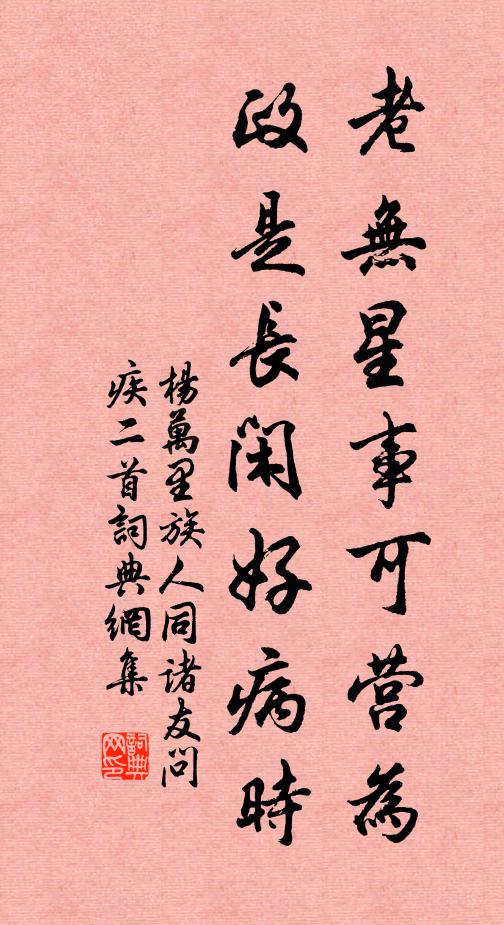 老無星事可营為
政是長閑好病時
楊萬里族人同諸友問
疾二首詞典網集
詞典
网印